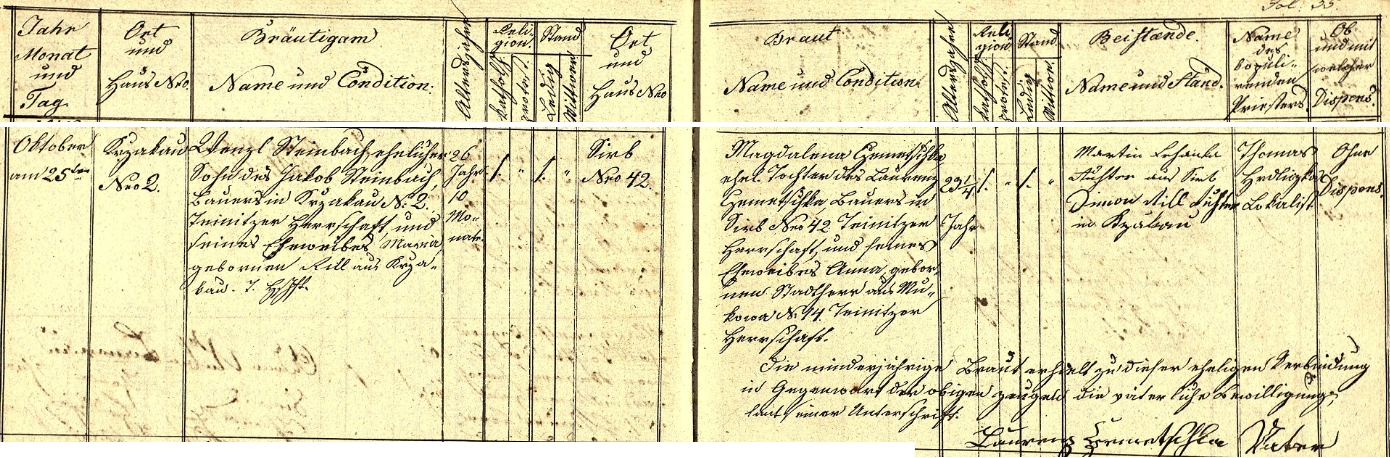 Fol. 33.
Jahr
Monat
und
Tag.
Ort
und
Haus Nro.
Bräutigam
Name und Condition.
Altersjahre
Religion.
katholisch
protest.
Stand
Ledig
Wittwer
Ort
und
Haus Nro
Braut
Name und Condition
Altersjahre
Religion
katholisch
protest.
Stand
Ledig
Wittwe
Beistände.
Name und Stand.
Name
des
kopuli-
renden
Priesters
Ob
und mit
welcher
Dispens.
Oktober
am 25ten
Krzakau
Nro 2.
Wenzl Steinbach, ehelicher
Sohn des Jakob Steinbach,
Bauers in Krzakau N. 2.
Teinitzer Herrschaft und
seines Eheweibes Maria
gebornen Rill aus Krza-
kau. T. Hschft.
26
Jahr
10
Mo-
nate.
1.
"
1.
"
Sirb
Nro 42.
Magdalena Czemetschka
ehel. Tochter des Laurenz
Czemetschka Bauers in
Sirb Nro 42 Teinitzer
Herrschaft, und seines
Eheweibes Anna, gebor-
nen Stadtherr aus Mu-
kowa N. 14 Teinitzer
Herrschaft.
23 1/4
Jahr
1.
"
1.
"
Martin
aus Sirb
Simon Rill
in Krzakau
Thomas
Hrdliczka
Lokalist
Ohne
Dispens.
Die minderjährige Braut erhielt zu dieser ehelichen Verbindung
in Gegenwart der obigen Zeugen die väterliche Bewilligung,
laut seiner Unterschrift.
Laurenz Czemetschka Vater